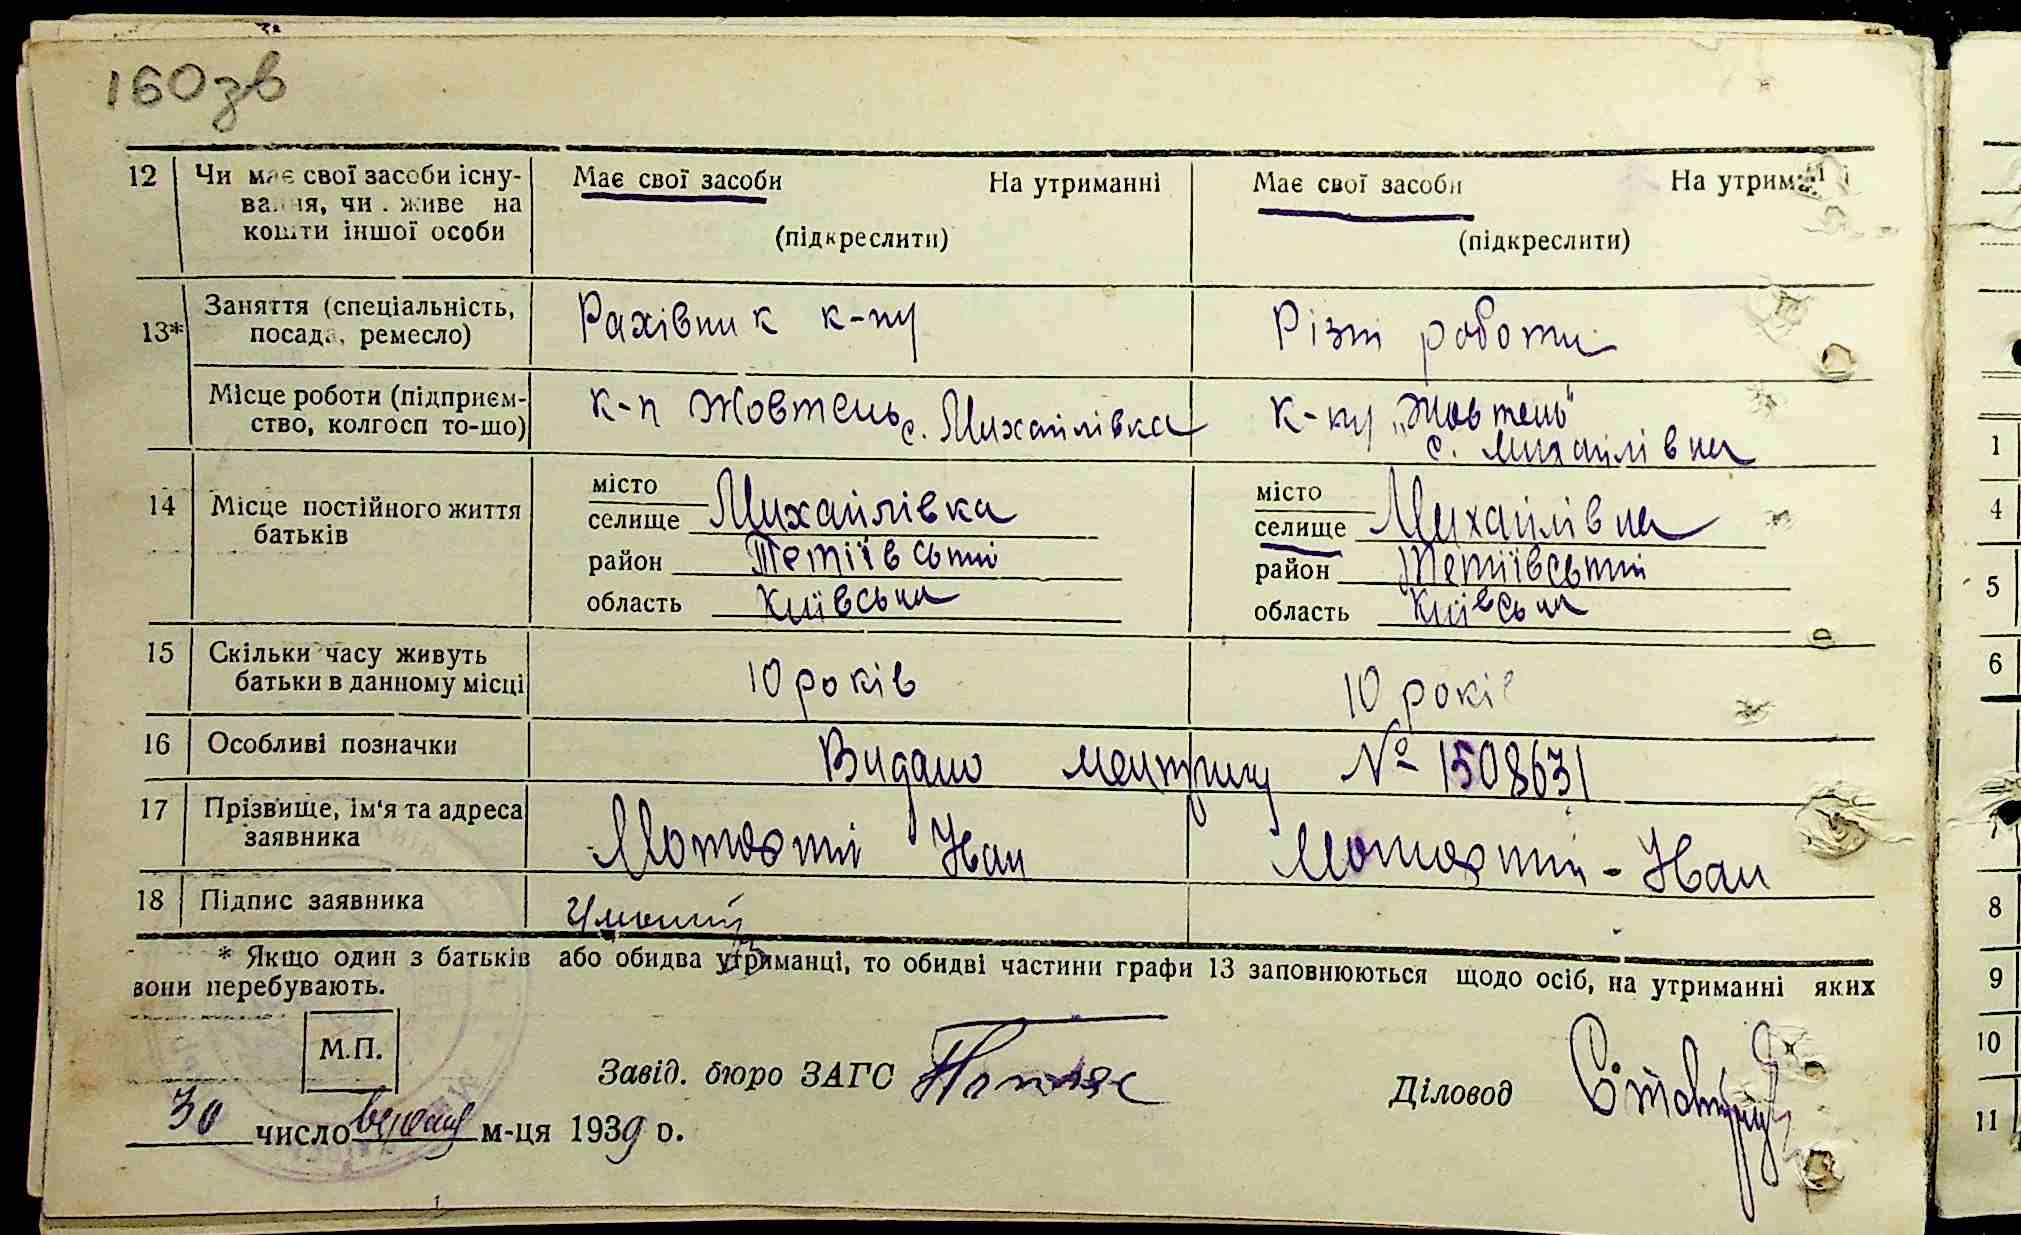 160зв
12 Чи має свої засоби існу- Має свої засоби На утриманні Має свої засоби На утрим
вання, чи живе на
кошти іншої особи (підкреслити) (підкреслити)
13* Заняття (спеціальність, Рахівник к-пу Різні роботи
посада, ремесло)
Місце роботи (підприєм- к-п Жовтень с. Михайлівка к-пу „Жовтень"
ство, колгосп то-що) с. Михайлівка
14 Місце постійного життя місто місто
батьків селище Михайлівка селище Михайлівка
район Тетіївський район Тетіївський
область Київська область Київська
15 Скільки часу живуть 10 років 10 років
батьки в данному місці
16 Особливі позначки Видано метрику № 1508631
17 Прізвище, ім'я та адреса Іван Іван
заявника
18 Підпис заявника
* Якщо один з батьків або обидва утриманці, то обидві частини графи 13 заповнюються щодо осіб, на утриманні яких
вони перебувають.
М.П.
Завід. бюро ЗАГС Діловод
30 число м-ця 1939 р.
1
4
5
6
7
8
9
10
11